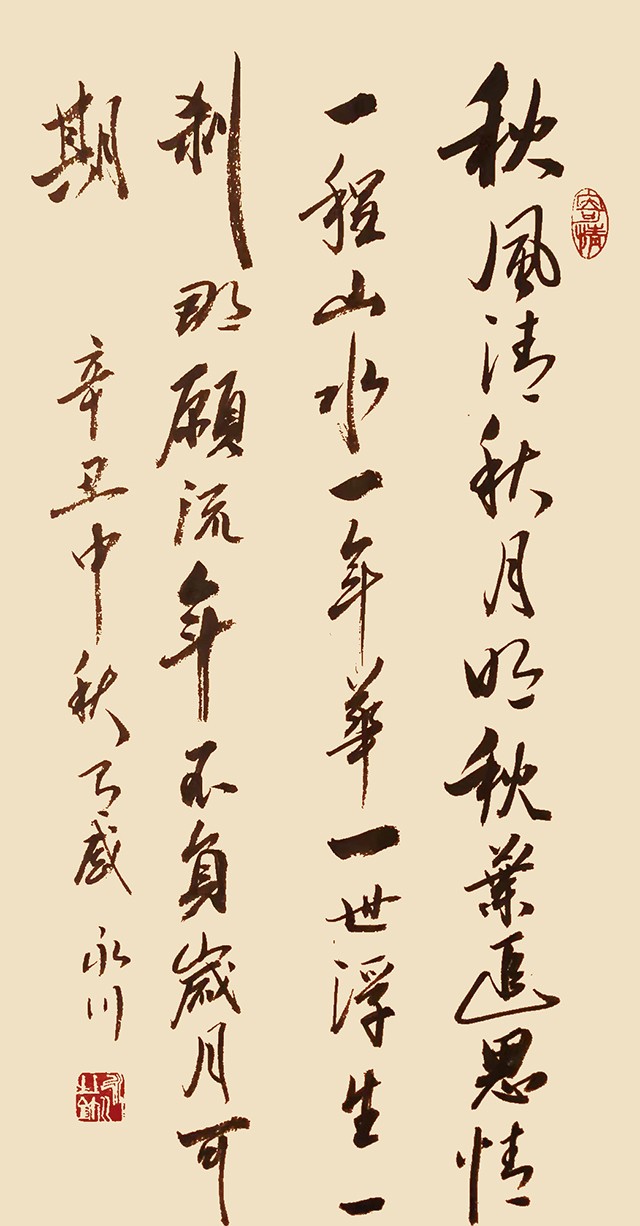 秋風清秋月明秋葉追思情
一程山水一年華一世浮生一
刹那願流年不負歲月可
期
辛丑中秋有感 永川
寄情